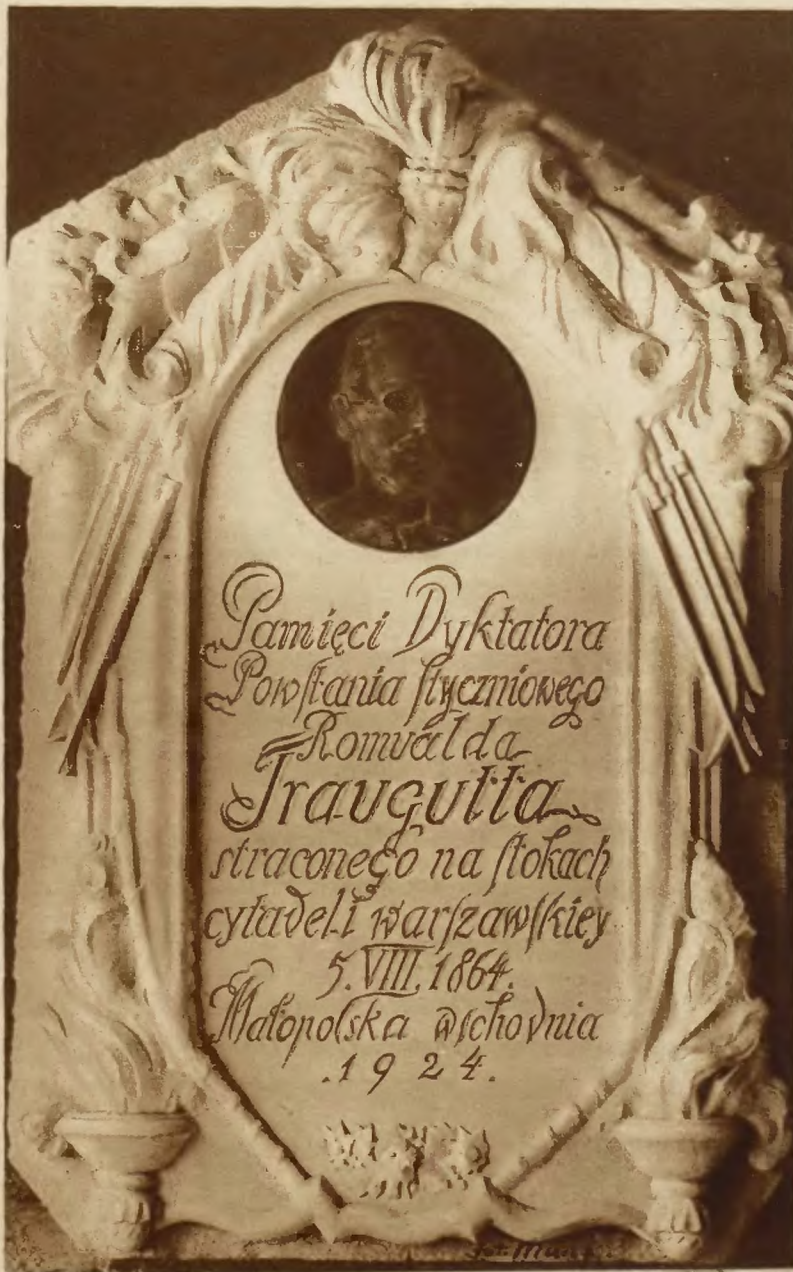 Pamięci Dyktatora
Powſtania ſtyczniowego
Romualda
Traugutta
straconego na ſtokach
cytadeli warſzawſkiey
5.VIII.1864.
Małopolska wſchodnia
.1924.